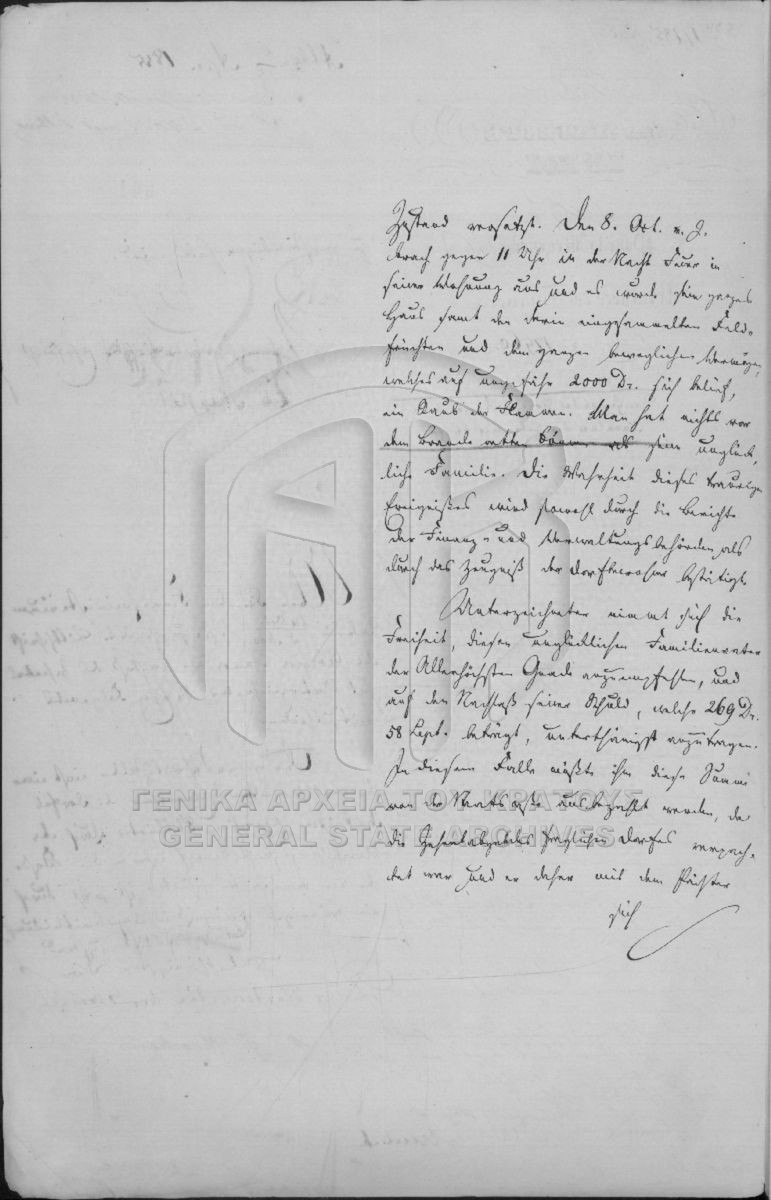 Zustand versetzt. Den 8. Oct. v. J.
brach gegen 11 Uhr in der Nacht Feuer in
seiner Wohnung aus und es wurde sein ganzes
Haus samt den darin eingesammelten Feld-
früchten und dem ganzen beweglichen Vermögen,
welches auf ungefähr 2000 Dr. sich belief,
ein Raub der Flammen. Man hat nichts vor
dem Brande retten können als seine unglück-
liche Familie. Die Wahrheit dieses traurigen
Ereignißes wird sowohl durch die Berichte
der Finanz- und Verwaltungsbehörden, als
durch das Zeugniß der Dorfbewohner bestätigt.
Unterzeichneter nimmt sich die
Freiheit, diesen unglücklichen Familienvater
der Allerhöchsten Gnade anzuempfehlen, und
auf den Nachlaß seiner Schuld, welche 269 Dr.
58 Lept. beträgt, unterthänigst anzutragen.
In diesem Falle müßte ihm diese Summe
von der Staatskasse ausbezahlt werden, da
die Zehentabgabe fraglichen Dorfes verpach-
tet war und er daher mit dem Pächter
sich
ΓΕΝΙΚΑ ΑΡΧΕΙΑ ΤΟΥ ΚΡΑΤΟΥΣ
GENERAL STATE ARCHIVES